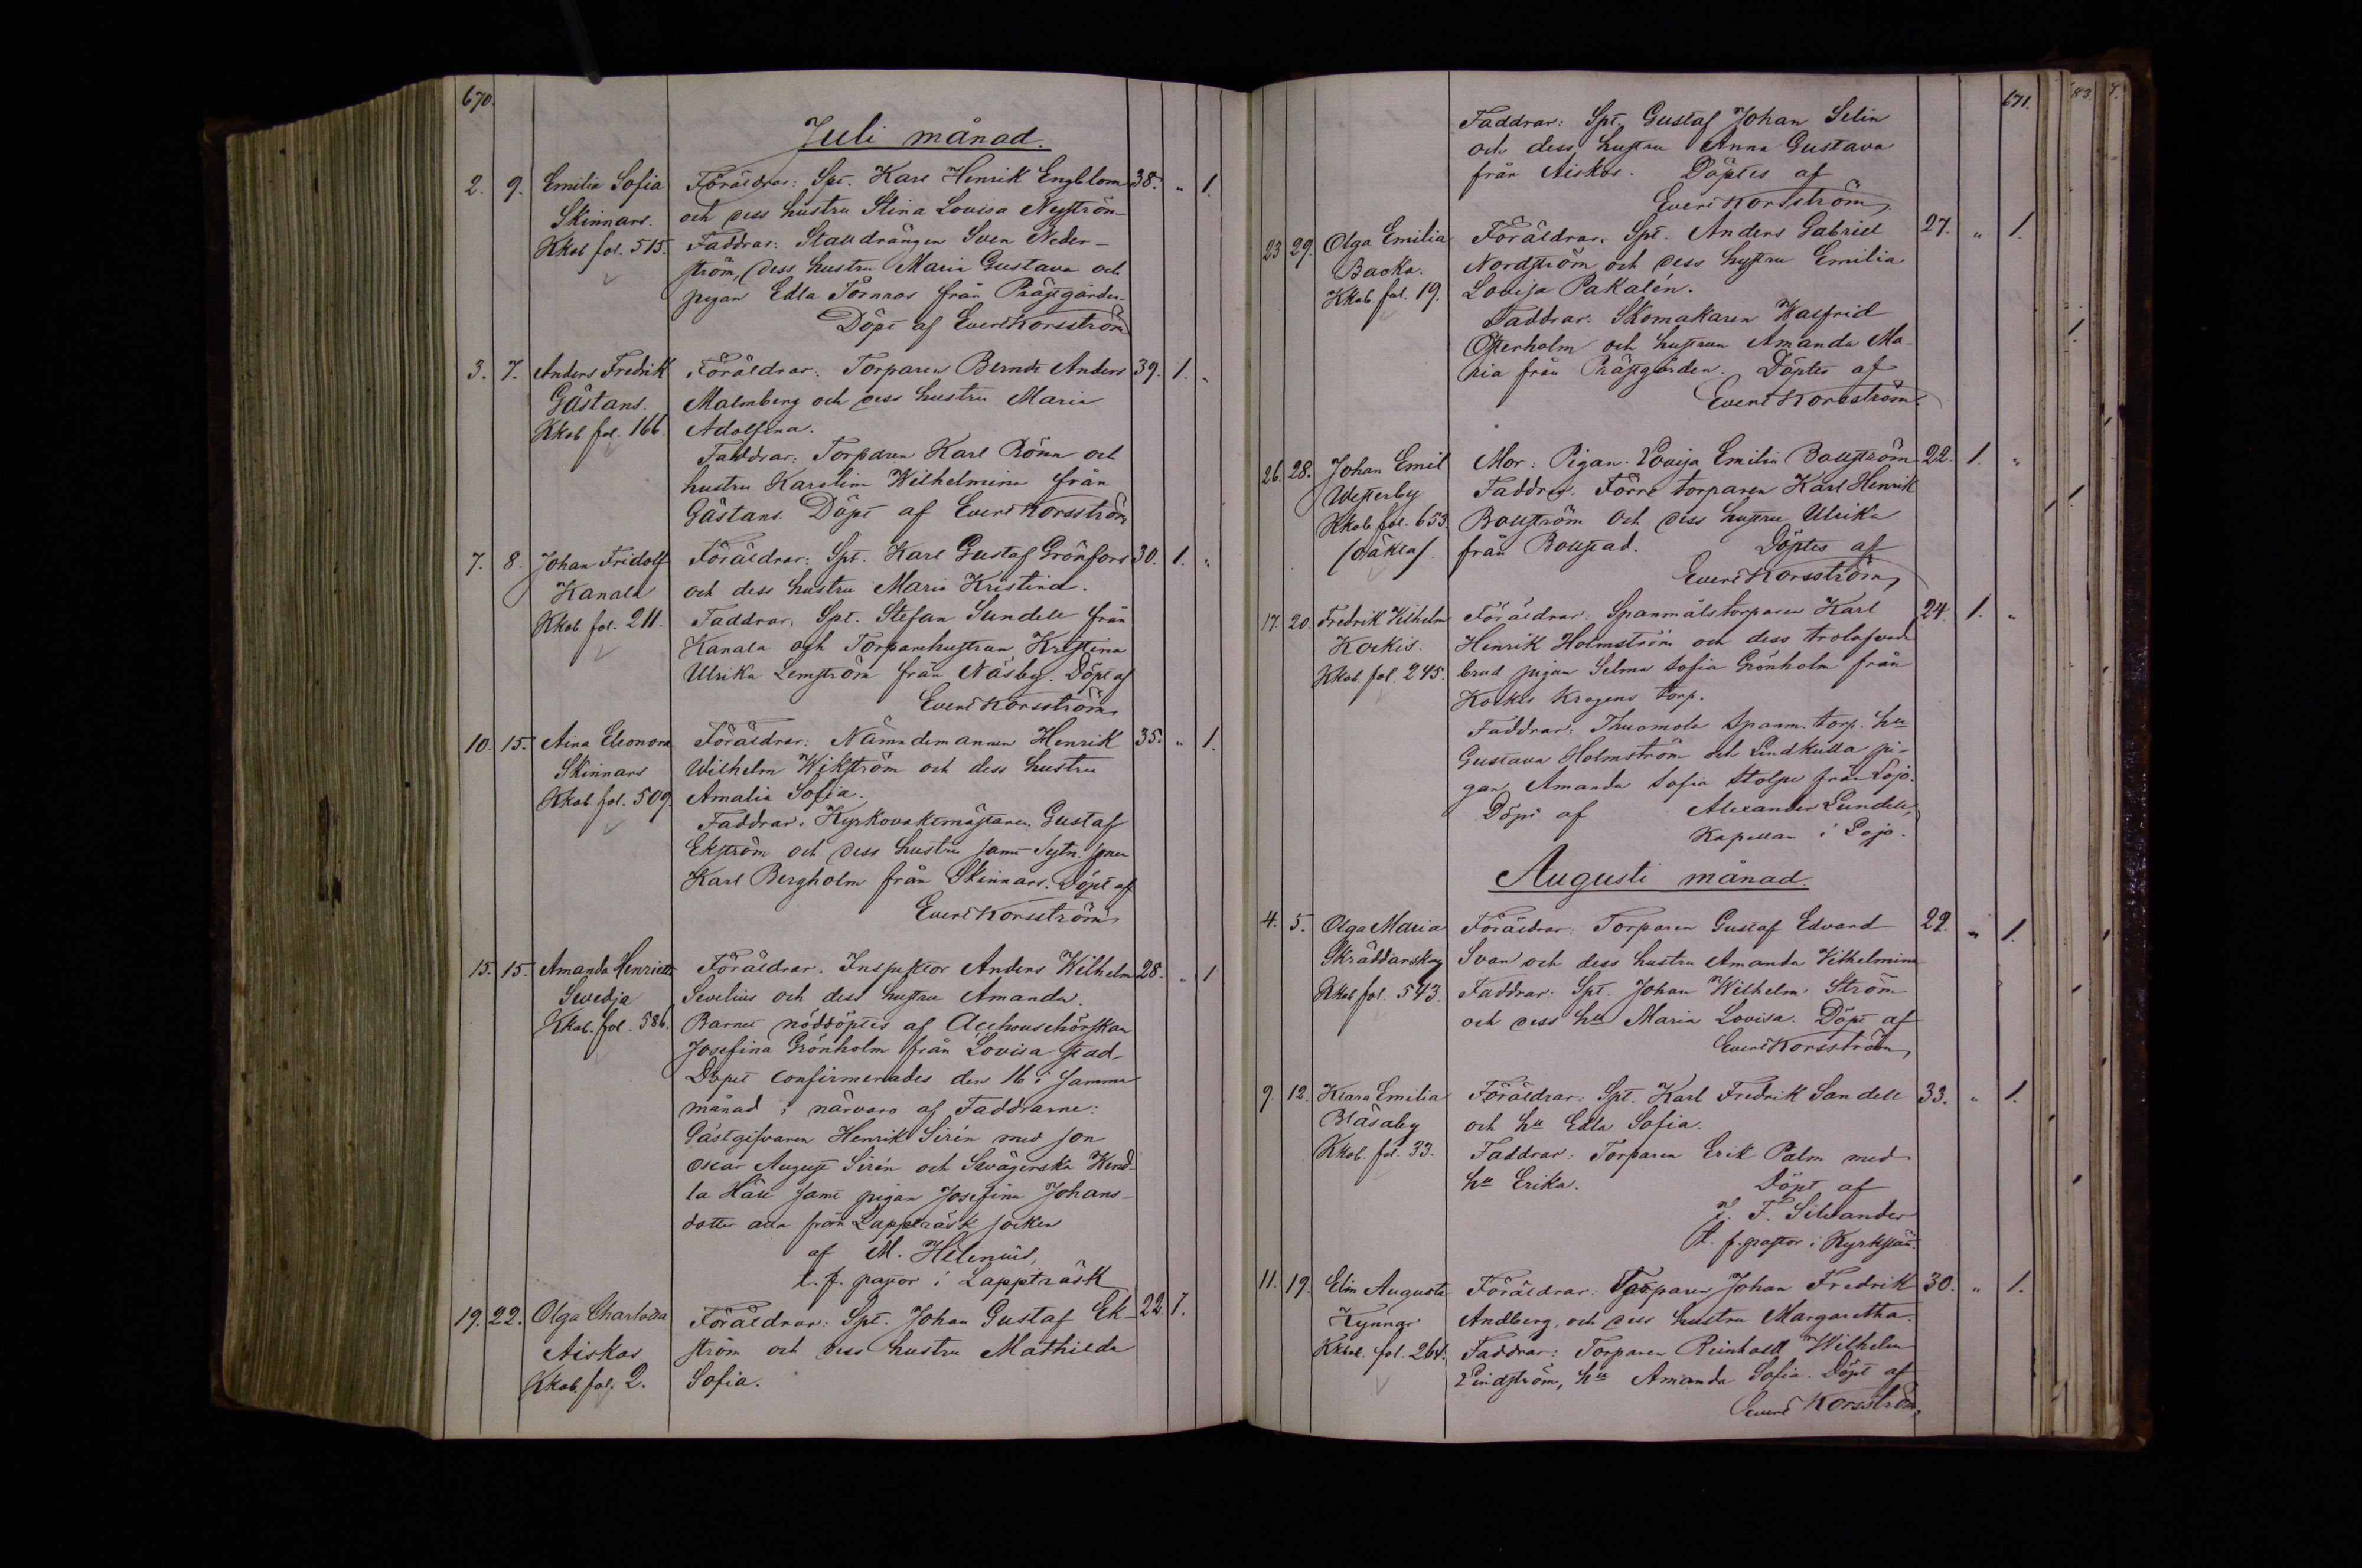 670.
Juli månad.
2. 9. Emilia Sofia Föräldrar: Spt. Karl Henrik Engblom 38. " 1.
Skinnars. och dess hustru Stina Lovisa Nyström
Kkob fol. 515. Faddrar: Stalldrängen Sven Neder-
ström, dess hustru Maria Gustava och
pigan Edla Törnroos från Prästgården.
Döpt af Evert Korsström
3. 7. Anders Fredrik Föräldrar: Torparen Berndt Anders 39. 1. "
Gästans. Malmberg och dess hustru Maria
Kkob fol. 166. Adolfina.
Faddrar: Torparen Karl Rönn och
hustru Karolina Wilhelmina från
Gästans. Döpt af Evert Korsström
7. 8. Johan Fridolf Föräldrar: Spt. Karl Gustaf Grönfors 30. 1. "
Kanala och dess hustru Maria Kristina.
Kkob fol. 211. Faddrar: Spt. Stefan Sundell från
Kanala och Torparehustrun Kristina
Ulrika Lemström från Näsby. Döpt af
Evert Korsström
10. 15. Aina Eleonora Föräldrar: Nämndemannen Henrik 35. " 1.
Skinnars Wilhelm Wikström och dess hustru
Kkob fol. 509. Amalia Sofia.
Faddrar: Kyrkovaktmästaren Gustaf
Ekström och dess hustru samt Sytn.
Karl Bergholm från Skinnars. Döpt af
Evert Korsström
15. 15. Amanda Henrietta Föräldrar: Inspektor Anders Wilhelm 28. " 1
Svedja Sevelius och dess hustru Amanda.
Kkob. fol. 586. Barnet nöddöptes af
Josefina Grönholm från Lovisa stad.
Dopet confirmerades den 16 i samma
månad i närvaro af Faddrarne:
Gästgifvaren Henrik Sirén med son
Oscar August Sirén och Svägerska Hend-
la Häll samt pigan Josefina Johans-
dotter alla från Lappträsk socken
af M. Helenius,
t. f. pastor i Lappträsk
19. 22. Olga Charlotta Föräldrar: Spt. Johan Gustaf Ek- 22 1.
Aiskos ström och dess hustru Mathilda
Kkob. fol. 2. Sofia.
671.
Faddrar: Spt. Gustaf Johan Selin
och dess hustru Anna Gustava
från Aiskos. Döptes af
Evert Korsström
23 29. Olga Emilia Föräldrar: Spt. Anders Gabriel 27. " 1.
Backa. Nordström och dess hustru Emilia
Kkob. fol. 19. Lovisa Pakalén.
Faddrar: Skomakaren Walfrid
Österholm och hustrun Amanda Ma-
ria från Prästgården. Döptes af
Evert Korsström
26. 28. Johan Emil Mor: Pigan Lovisa Emilia Bollström 22. 1. "
Westerby Faddrar: Förre torparen Karl Henrik
Kkob fol. 653. Bollström och dess hustru Ulrika
(oäkta) från Bollstad. Döptes af
Evert Korsström
17. 20. Fredrik Vilhelm Föräldrar: Spanmålstorparen Karl 24. 1. "
Kockis. Henrik Holmström och dess trolofvade
Kkob fol. 245. brud pigan Selma Sofia Grönholm från
Kockis Krogens torp.
Faddrar: Thuomola Spanm. torp. hu
Gustava Holmström och Lindkulla pi-
gan Amanda Sofia Stolpe från Lojo.
Döpt af Alexander Lundell,
Kapellan i Lojo.
Augusti månad.
4. 5. Olga Maria Föräldrar: Torparen Gustaf Edvard 22. " 1.
Skräddarskog Svan och dess hustru Amanda Vilhelmina
Kkob fol. 543. Faddrar: Spt. Johan Wilhelm Ström
och dess hu Maria Lovisa. Döpt af
Evert Korsström
9. 12. Klara Emilia Föräldrar: Spt. Karl Fredrik Sandell 33. " 1.
Bläsaby och hu Edla Sofia.
Kkob. fol. 33. Faddrar: Torparen Erik Palm med
hu Erika. Döpt af
F. Silvander
t. f. pastor i
11. 19. Elin Augusta Föräldrar: Torparen Johan Fredrik 30. " 1.
Kynnar Andberg, och dess hustru Margaretha.
Kkob. fol. 264. Faddrar: Torparen Reinholdt Wilhelm
Lindström, hu Amanda Sofia. Döpt af
Evert Korsström